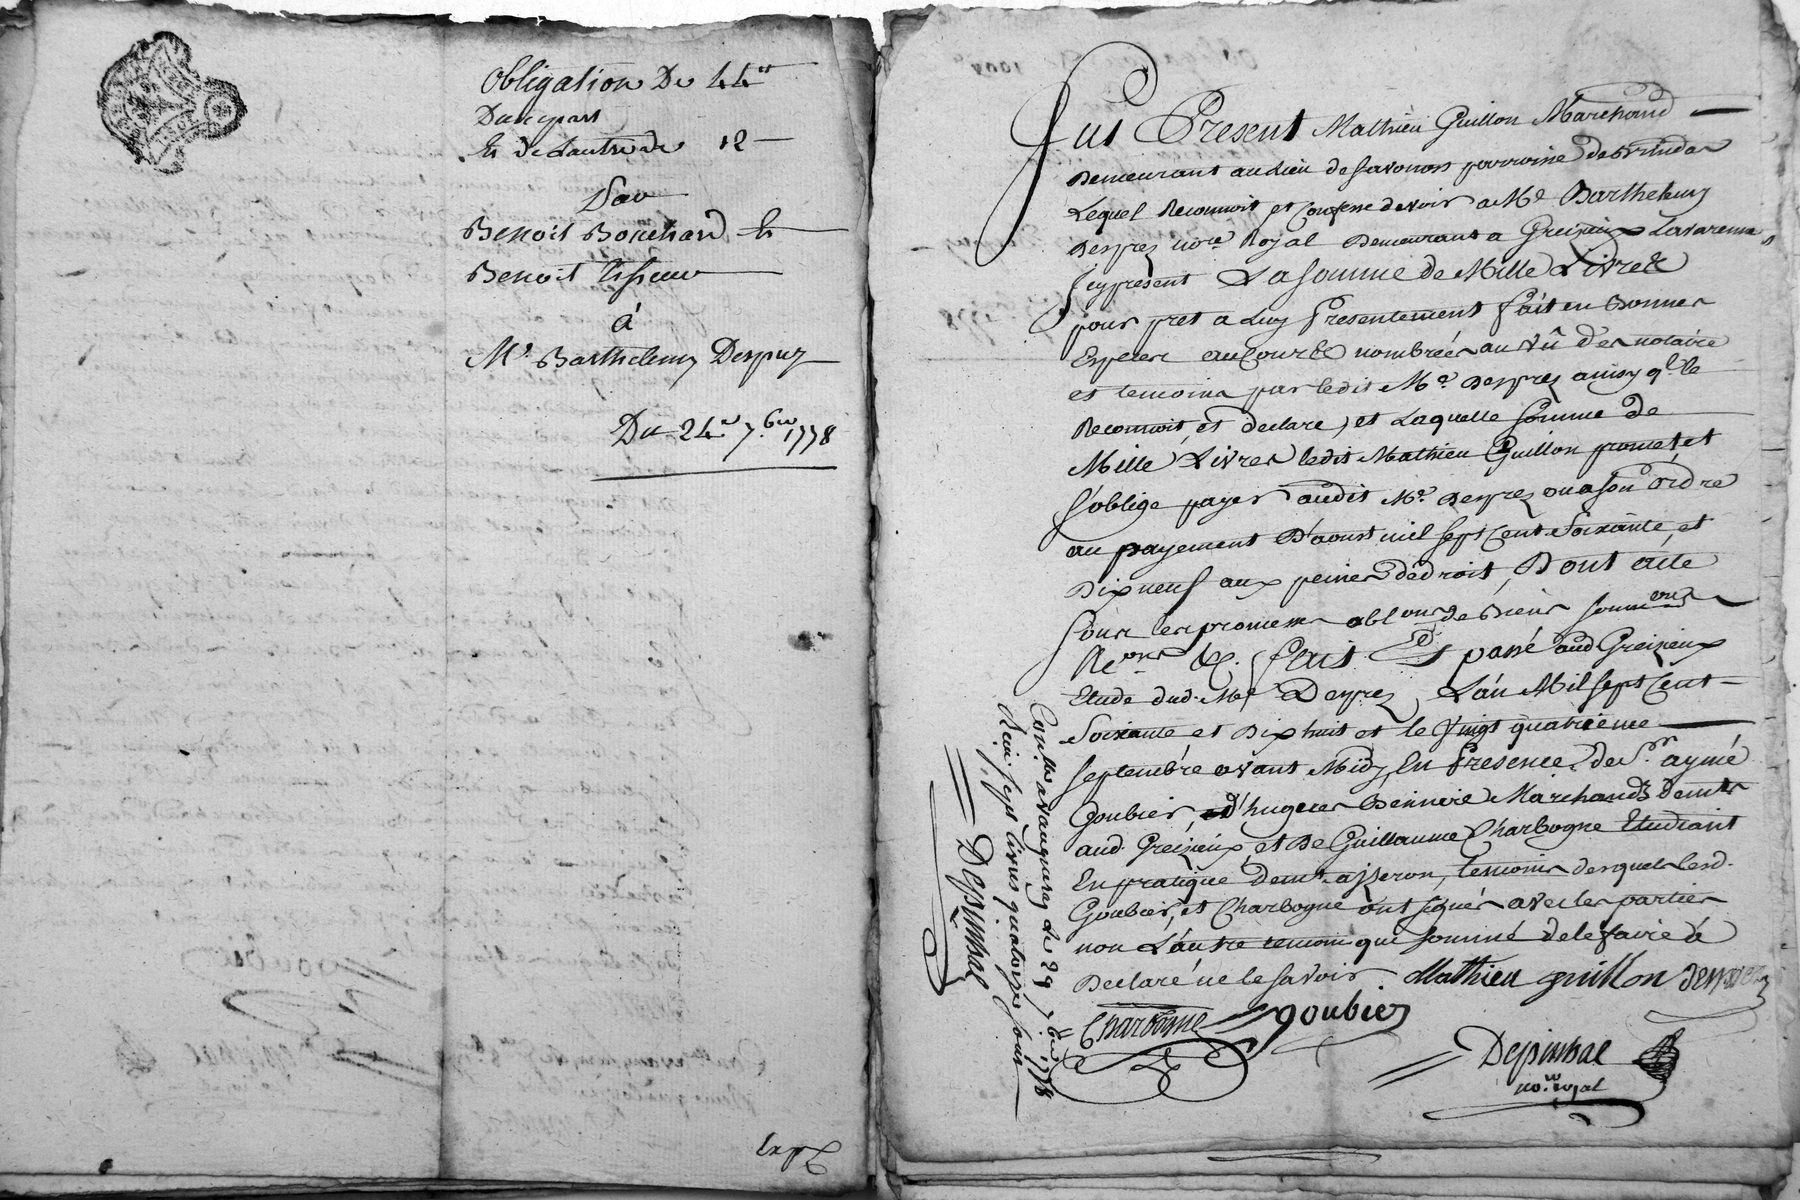 Obligation De 44ᵗᵗ
Dune part
Et de Lautre de 12
Par
Benoit Bouchard Et
Benoit
à
Mᵉ. Barthelemy Desprez
Du 24ᵉ 7.bre 1778
Exp.ée
Fut Present Mathieu Guillon Marchand
Demeurant au lieu de Savonon parroisse de Vrindas
Lequel Reconnoit et Confesse devoir a Mᵉ Barthelemy
Desprez nore Royal Demeurant a Greizieux Lavarenne
Cy present La somme de Mille Livres
pour pret a Luy Presentement fait en Bonnes
Especes au Cours nombrées au vû des notaire
et temoins par ledit Mᵉ. Desprez ainsy q.le le
Reconnoit et declare, et Laquelle somme de
Mille Livres ledit Mathieu Guillon promet et
s'oblige payer audit Mᵉ. Desprez ou a son ordre
au payement D'aoust mil sept Cent Soixante et
Dix neuf aux peines de droit, Dont acte
sous les promesses obl.ons de Biens soum.ons
Re.ons &c. fait et passé aud Greizieux
Etude dud. Mᵉ Desprez, L'an Mil sept Cent
Soixante et Dix huit et le Vingt quatrieme
septembre avant Midy, En Presence de Sr. aymé
Goubier, d'hugues Marchands demts
aud. Greizieux, et De Guillaume Charbogne Etudiant
En pratique demt. a jzeron, temoins desquels lesd.
Goubier, et Charbogne ont signés avec les parties
non L'autre temoin que sommé de le faire à
Declaré ne le savoir Mathieu guillon Desprez
Charbogne goubier
Despinhac
no.re royal
Con.llé a Vaugneray le 29 7.bre 1778
Reçu sept livres quatorze sous
Despinhac